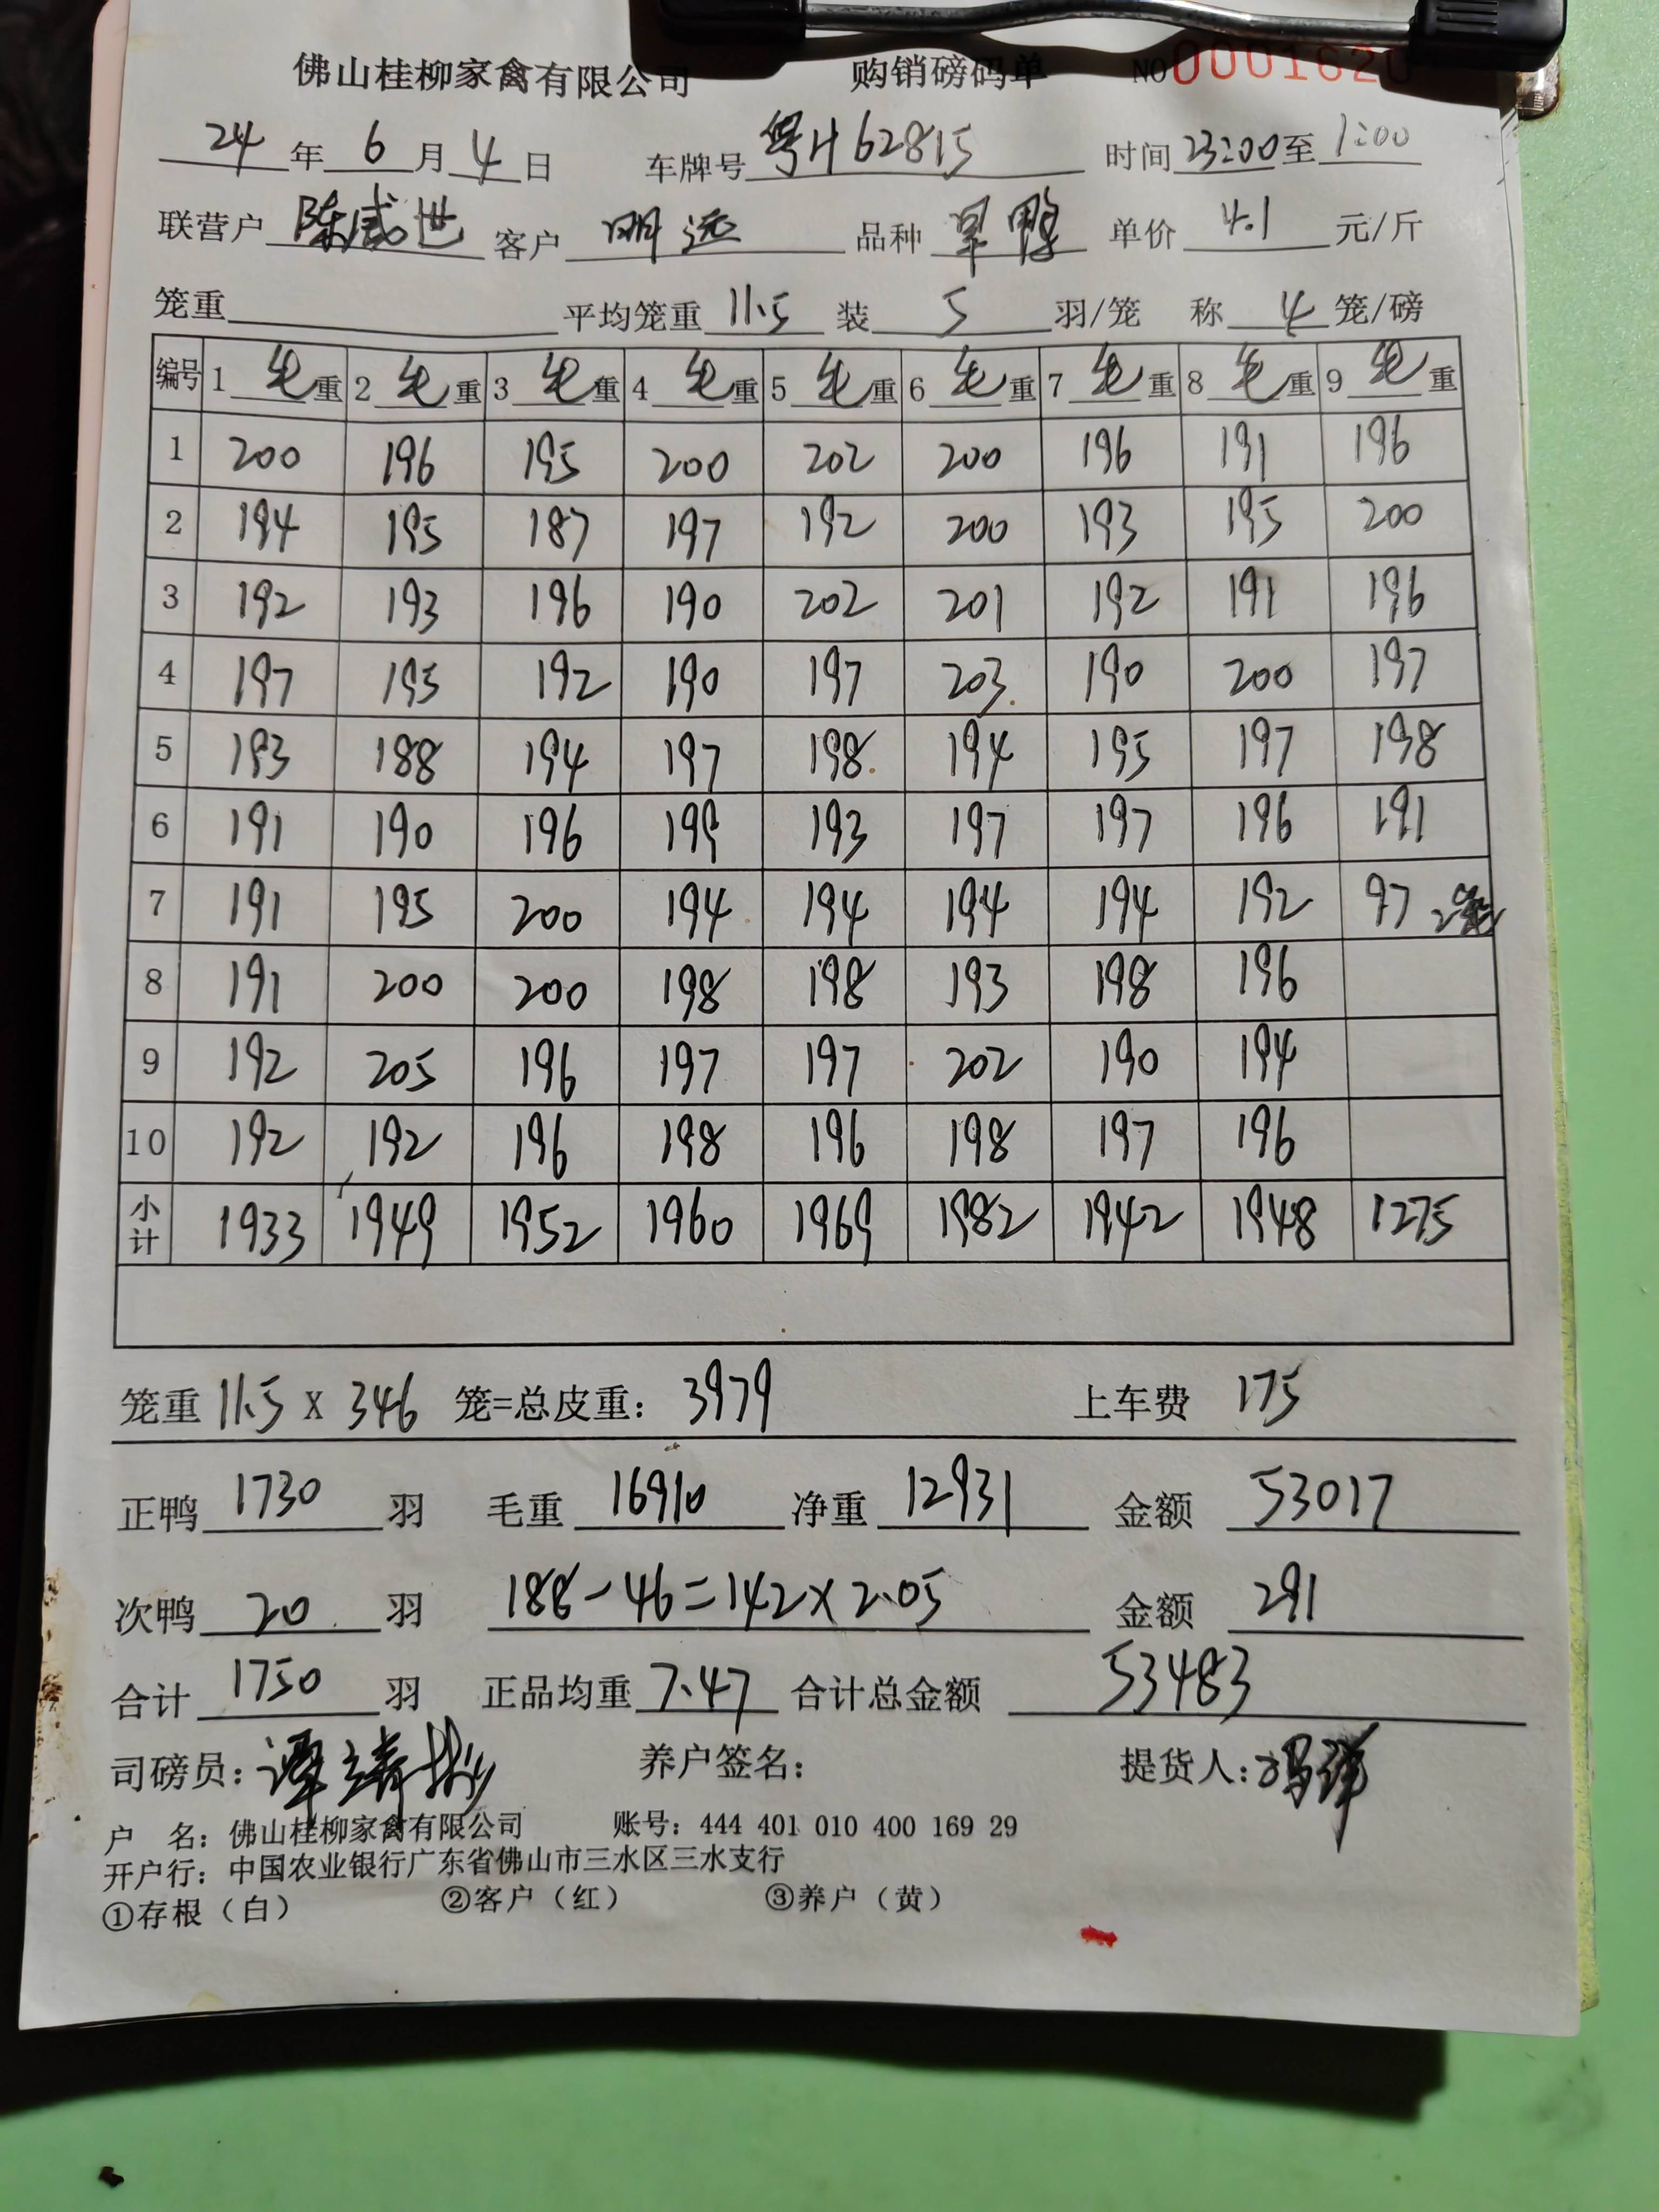 佛山桂柳家禽有限公司 购销磅码单 NO 0001620
24 年 6 月 4 日 车牌号 粤H62815 时间 23:00 至 1:00
联营户 陈威世 客户 明远 品种 旱鸭 单价 4.1 元/斤
笼重 平均笼重 11.5 装 5 羽/笼 称 4 笼/磅
编号 1 毛 重 2 毛 重 3 毛 重 4 毛 重 5 毛 重 6 毛 重 7 毛 重 8 毛 重 9 毛 重
1 200 196 195 200 202 200 196 191 196
2 194 195 187 197 192 200 193 195 200
3 192 193 196 190 202 201 192 191 196
4 197 195 192 190 197 203 190 200 197
5 193 188 194 197 198 194 195 197 198
6 191 190 196 199 193 197 197 196 191
7 191 195 200 194 194 194 194 192 97 2笼
8 191 200 200 198 198 193 198 196
9 192 205 196 197 197 202 190 194
10 192 192 196 198 196 198 197 196
小计 1933 1949 1952 1960 1969 1982 1942 1948 1275
笼重 11.5 X 346 笼=总皮重: 3979 上车费 175
正鸭 1730 羽 毛重 16910 净重 12931 金额 53017
次鸭 20 羽 188-46=142×2.05 金额 291
合计 1750 羽 正品均重 7.47 合计总金额 53483
司磅员: 养户签名: 提货人:
户 名: 佛山桂柳家禽有限公司 账号: 444 401 010 400 169 29
开户行: 中国农业银行广东省佛山市三水区三水支行
①存根(白) ②客户(红) ③养户(黄)